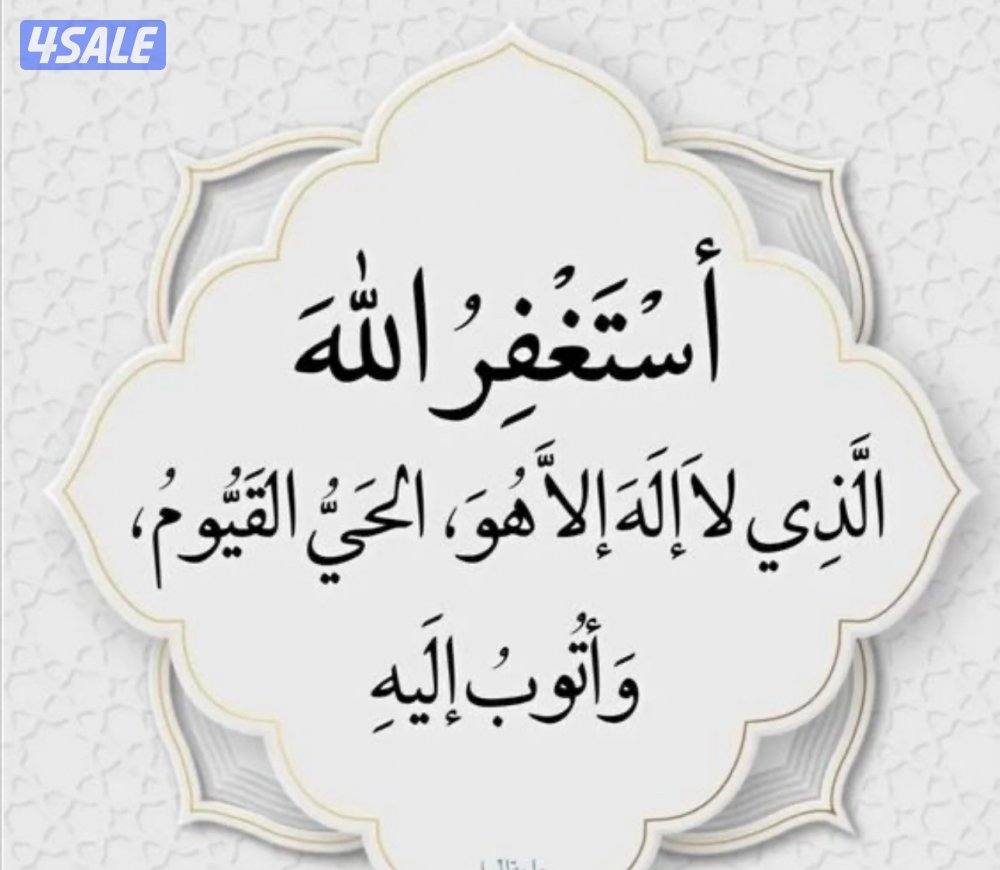 4SALE
أَسْتَغْفِرُ اللهَ
الَّذِي لاَ إِلَهَ إِلاَّ هُوَ، الحَيُّ القَيُّومُ،
وَأَتُوبُ إِلَيهِ